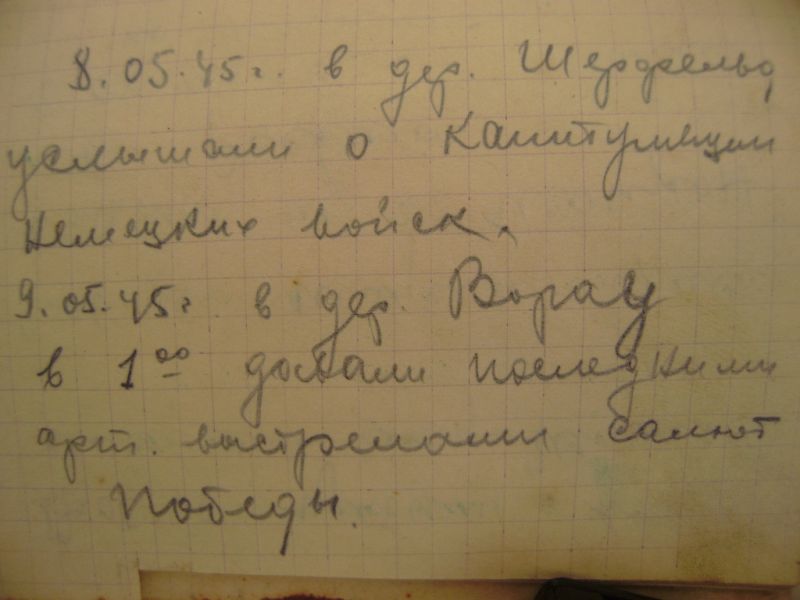 8.05.45г. в дер. Шерфельд,
услышали о капитуляции
немецких войск.
9.05.45г в дер. Ворау
в 1⁰⁰ довали последними
арт. выстрелами салют
Победы.